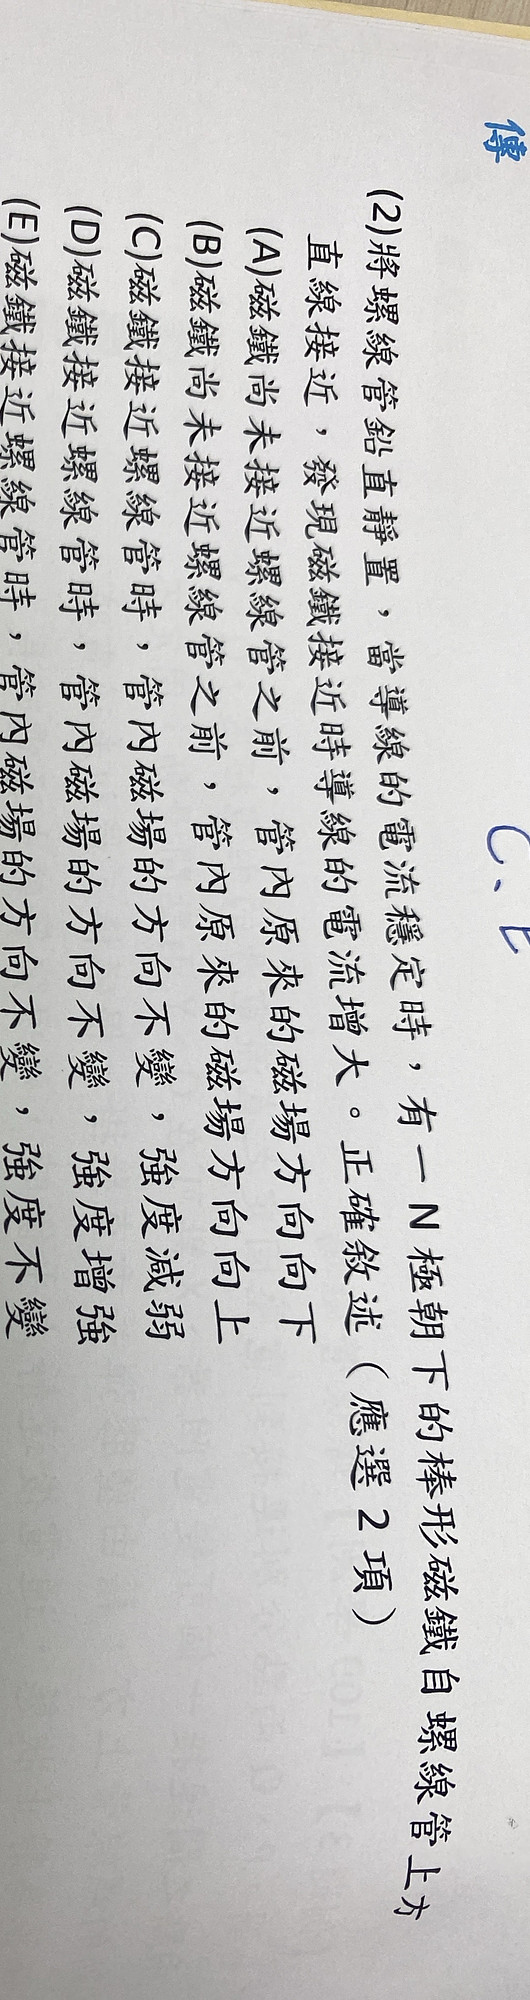 傳
C、E
(2)將螺線管鉛直靜置，當導線的電流穩定時，有一N極朝下的棒形磁鐵自螺線管上方
直線接近，發現磁鐵接近時導線的電流增大。正確敘述（應選2項）
(A)磁鐵尚未接近螺線管之前，管內原來的磁場方向向下
(B)磁鐵尚未接近螺線管之前，管內原來的磁場方向向上
(C)磁鐵接近螺線管時，管內磁場的方向不變，強度減弱
(D)磁鐵接近螺線管時，管內磁場的方向不變，強度增強
(E)磁鐵接近螺線管時，管內磁場的方向不變，強度不變